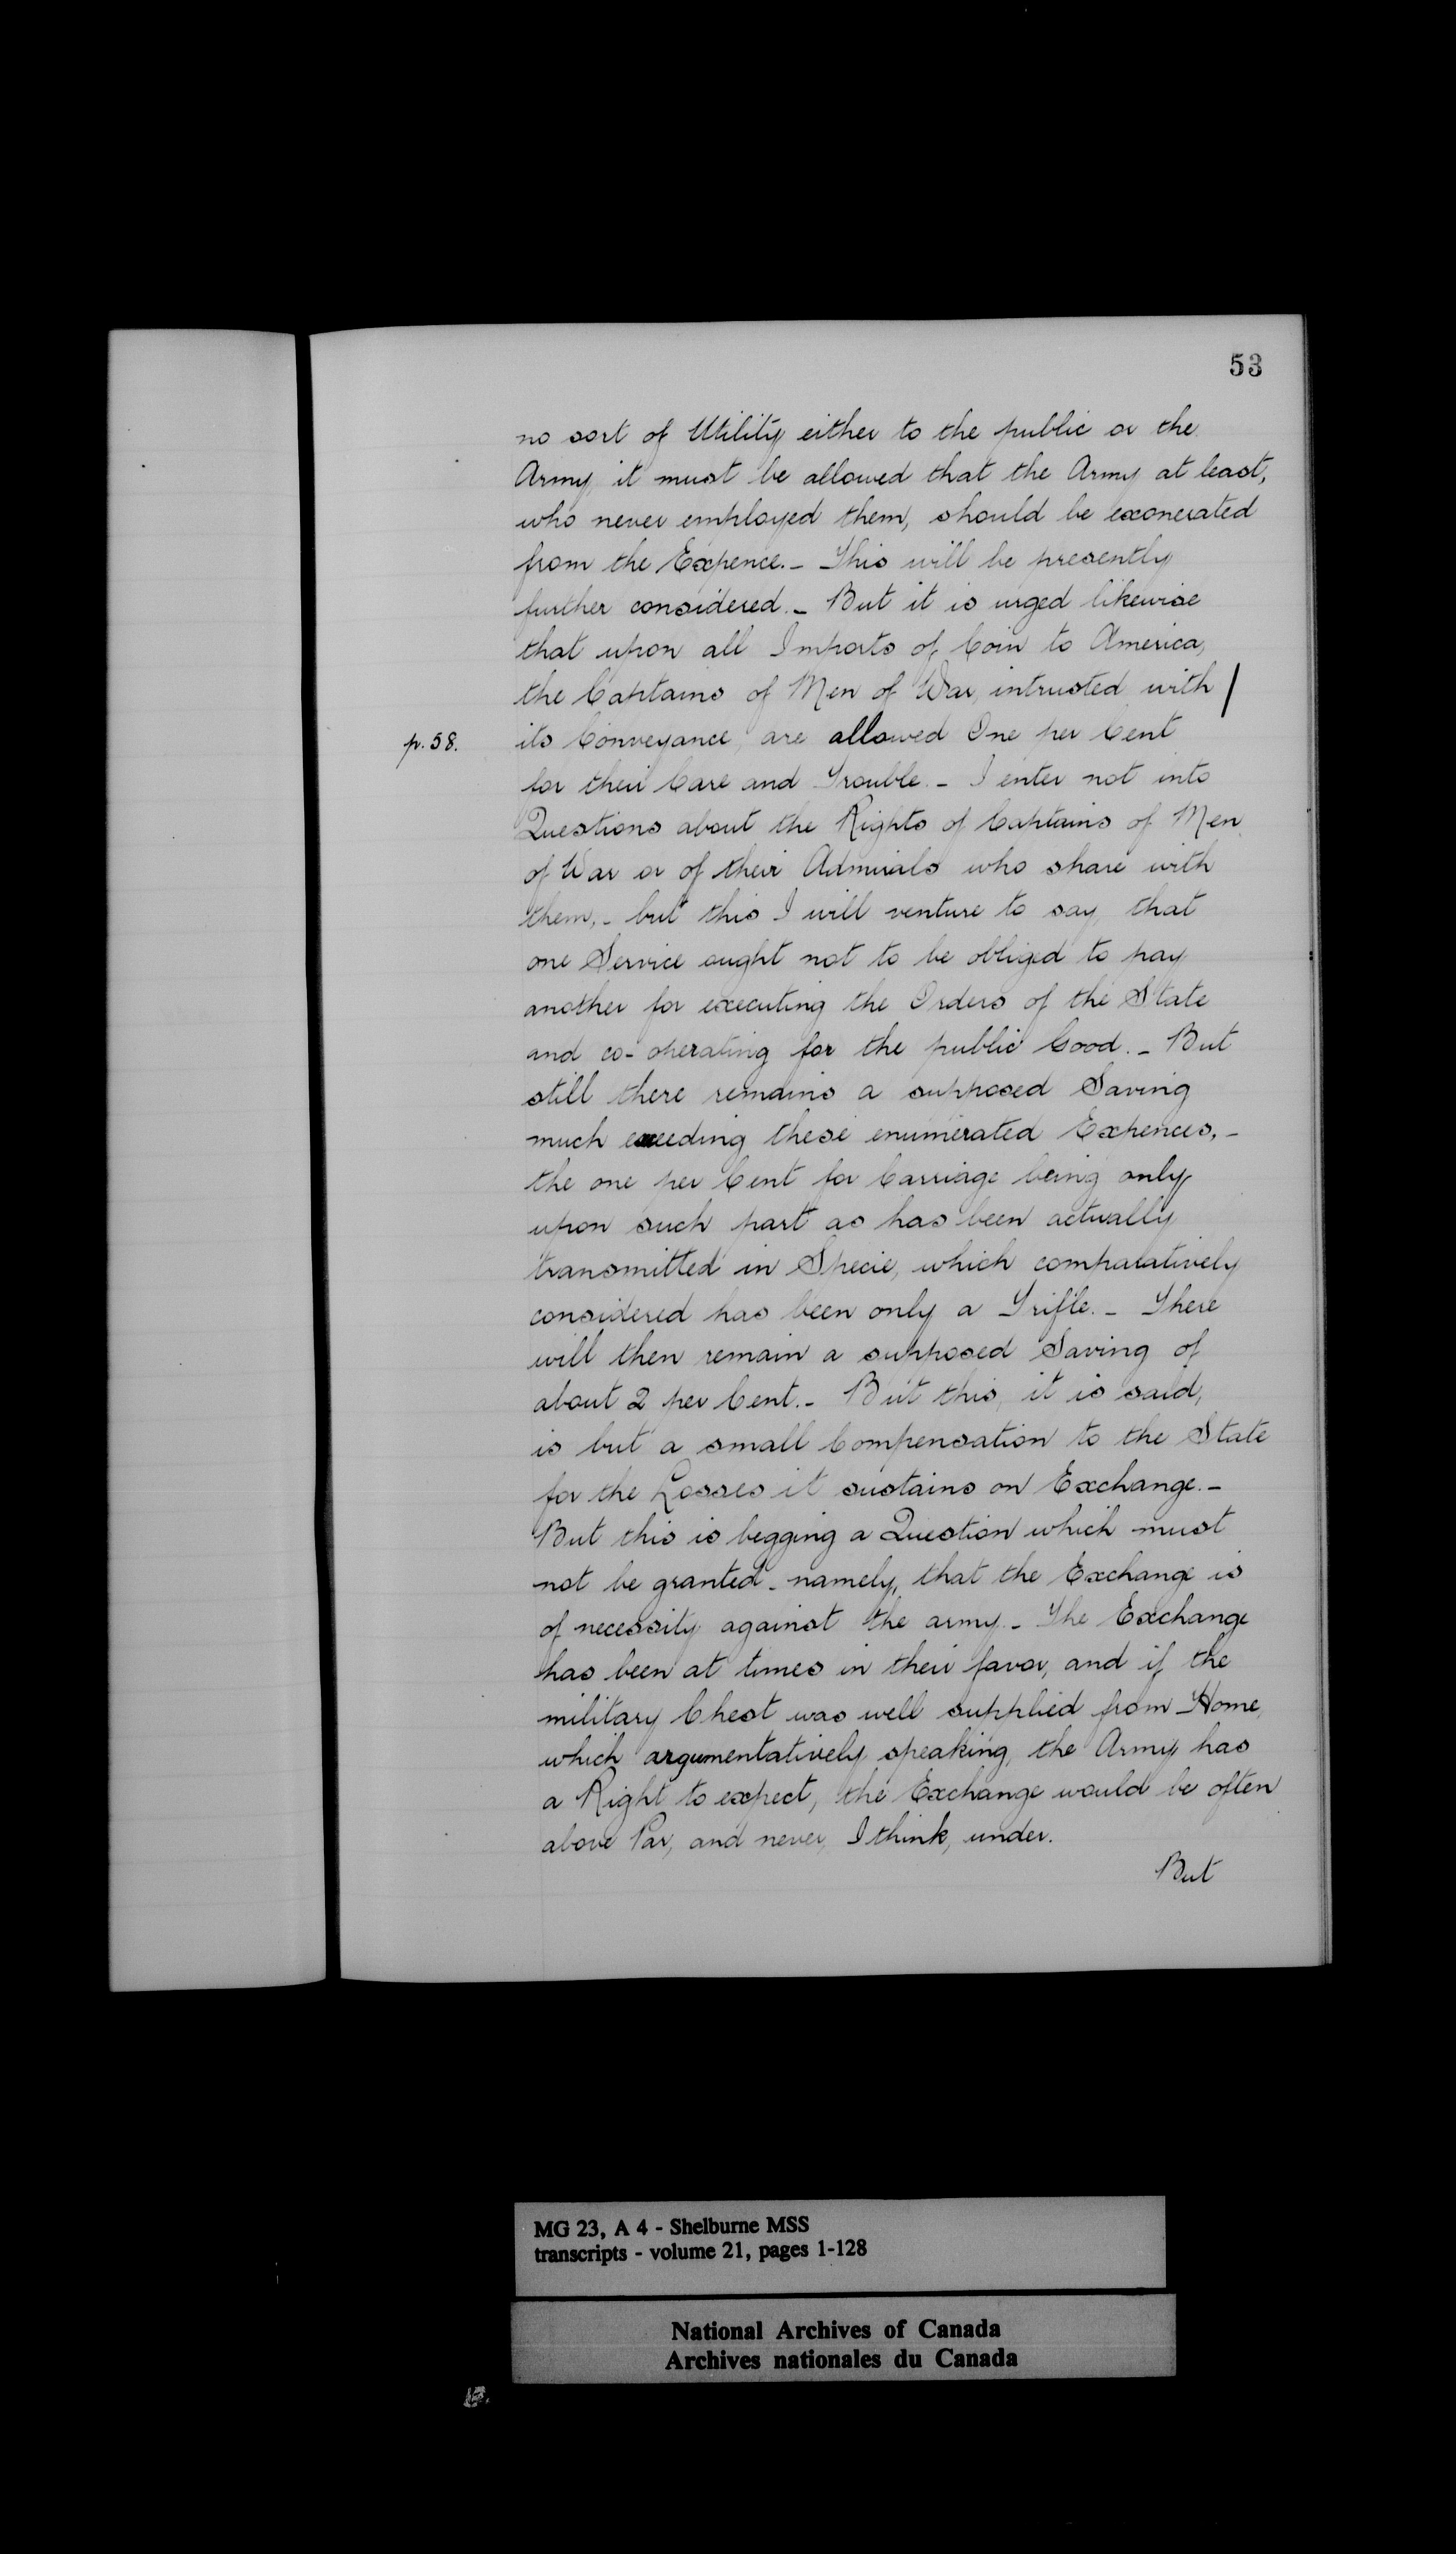 53
no sort of Utility either to the public or the
Army, it must be allowed that the Army at least,
who never employed them, should be exonerated
from the Expence. - This will be presently
further considered. - But it is urged likewise
that upon all Imports of Coin to America,
the Captains of Men of War, intrusted with /
p. 58. its Conveyance, are allowed One per Cent
for their Care and Trouble. - I enter not into
Questions about the Rights of Captains of Men
of War or of their Admirals who share with
them, - but this I will venture to say, that
one Service ought not to be obliged to pay
another for executing the Orders of the State
and co-operating for the public Good. - But
still there remains a supposed Saving
much exceeding these enumerated Expences, -
the one per Cent for Carriage being only
upon such part as has been actually
transmitted in Specie, which comparatively
considered has been only a Trifle. - There
will then remain a supposed Saving of
about 2 per Cent. - But this, it is said,
is but a small Compensation to the State
for the Losses it sustains on Exchange. -
But this is begging a Question which must
not be granted - namely, that the Exchange is
of necessity against the army - The Exchange
has been at times in their favor, and if the
military Chest was well supplied from Home,
which argumentatively speaking, the Army has
a Right to expect, the Exchange would be often
above Par, and never, I think, under.
But
MG 23, A 4 - Shelburne MSS
transcripts - volume 21, pages 1-128
National Archives of Canada
Archives nationales du Canada